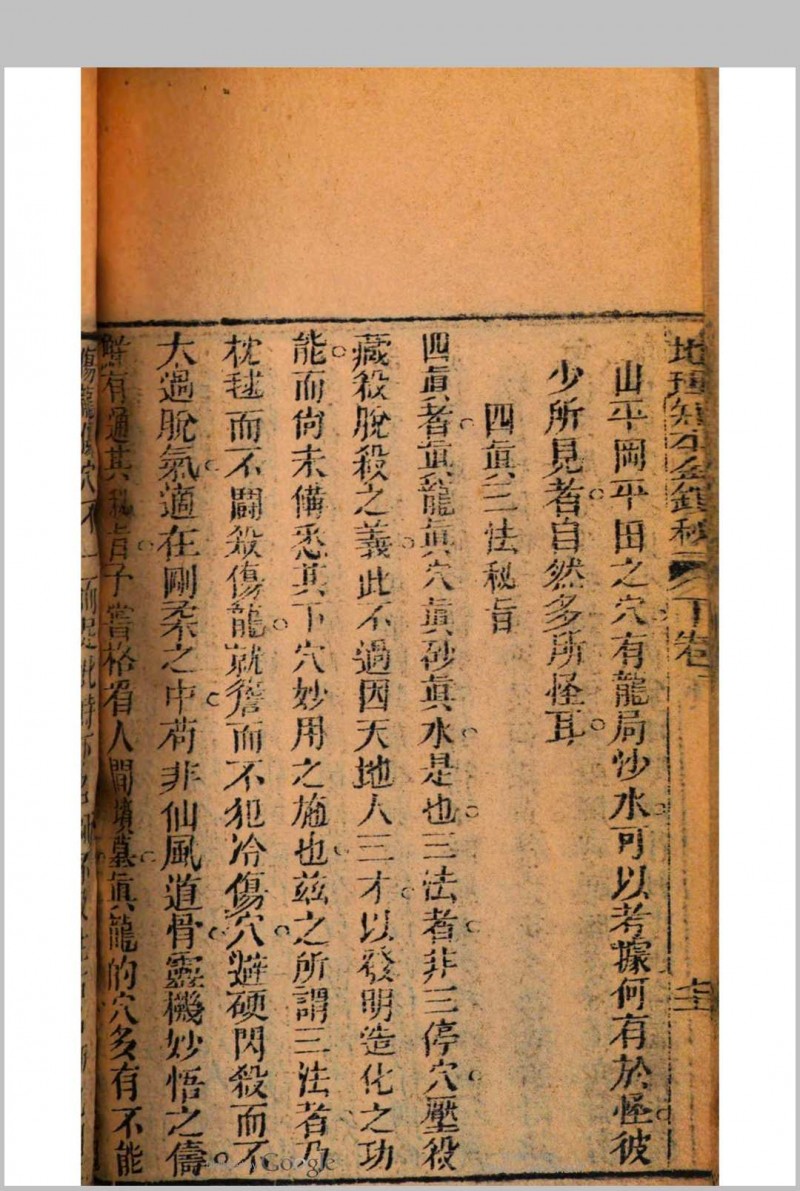 山平岡平田之穴有龍局沙水可以考據何有於怪彼
少所見者自然多所怪耳
四眞三法秘旨
四眞者眞龍眞穴眞砂眞水是也三法者非三停穴壓殺
藏殺脫殺之義此不過因天地人三才以發明造化之功
能而尙未備悉其下穴妙用之施也兹之所謂三法者乃
枕毬而不鬪殺傷龍就簷而不犯冷傷穴避硬閃殺而不
大過脫氣適在剛柔之中苟非仙風道骨靈機妙悟之儔
有通其秘旨予嘗格看人間墳墓眞龍的穴多有不能
Google